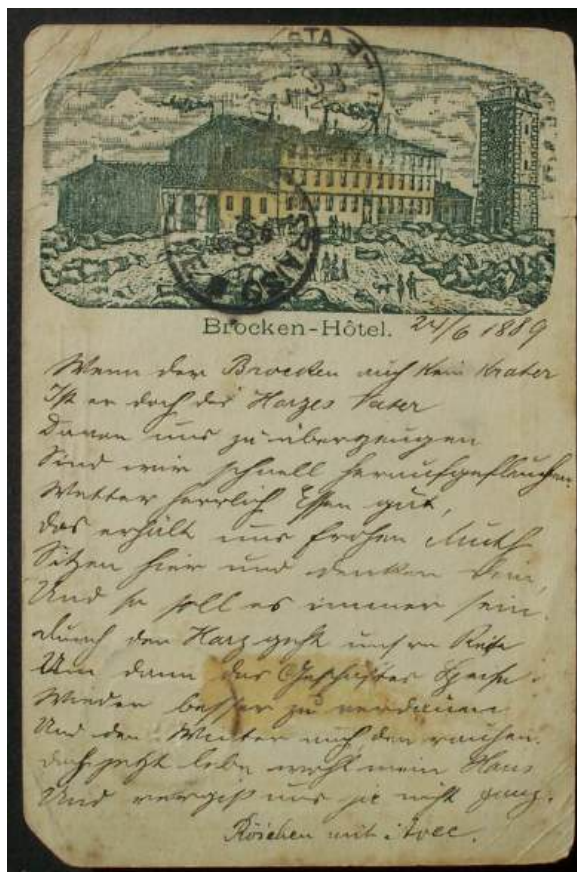 Brocken-Hôtel. 24/6 1889
Wenn der Brocken auch kein Krater
Ist er doch des Harzes Vater
Davon uns zu überzeugen
Sind wir schnell heraufgeflauchen.
Wetter herrlich Essen gut,
Das erhält uns frohen Muth
Sitzen hier und denken Dein,
Und so soll es immer sein.
Durch den Harz geht unsre Reise
Um dann des Geschäftes Speise
Wieder besser zu verdauen
Und den Winter auch, den rauhen.
Doch jetzt lebe wohl mein Hans
Und vergiß uns je nicht ganz.
Röschen mit